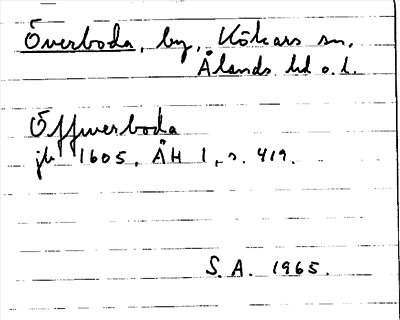 Överboda, by, Kökars sn,
Ålands hd o. l.
Öffwerboda
jb 1605, ÅH 1, s. 419.
S. A. 1965.